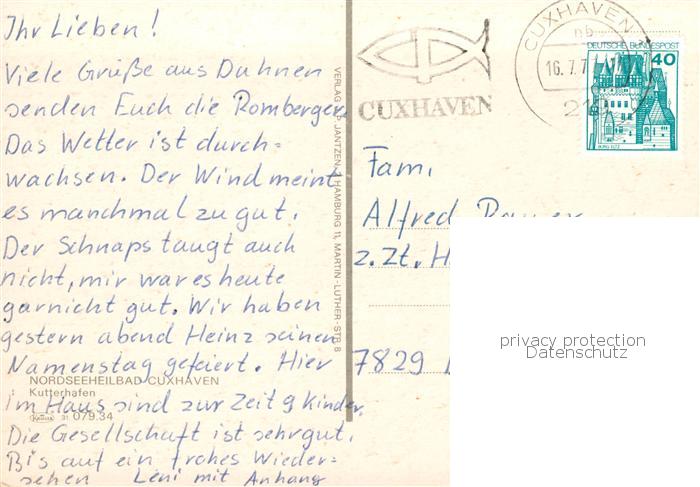 Ihr Lieben!
Viele Grüße aus Duhnen
senden Euch die Romberger.
Das Wetter ist durch-
wachsen. Der Wind meint
es manchmal zu gut.
Der Schnaps taugt auch
nicht, mir war es heute
garnicht gut. Wir haben
gestern abend Heinz seinen
Namenstag gefeiert. Hier
im Haus sind zur Zeit 9 Kinder.
Die Gesellschaft ist sehr gut.
Bis auf ein frohes Wieder-
sehen Leni mit Anhang
NORDSEEHEILBAD CUXHAVEN
Kutterhafen
Krüger 31 079.34
JANTZEN, 2 HAMBURG 11, MARTIN-LUTHER-STR. 8
CUXHAVEN
CUXHAVEN
nb
16.7.7
DEUTSCHE BUNDESPOST
40
BURG ELTZ
Fam.
Alfred
z.Zt. H
7829
privacy protection
Datenschutz